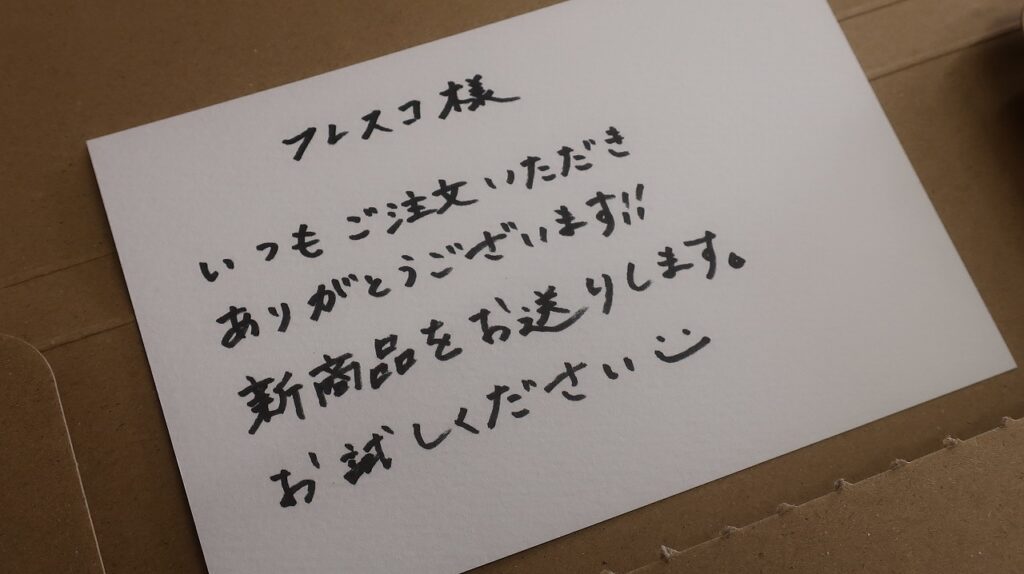 フレスコ様
いつもご注文いただき
ありがとうございます!!
新商品をお送りします。
お試しください